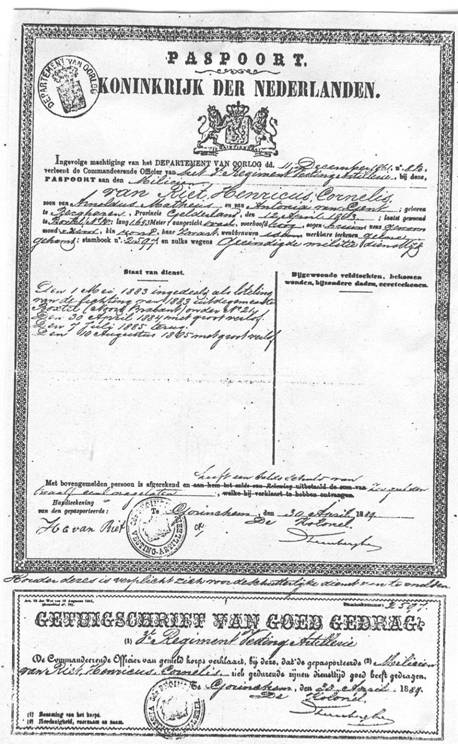 DEPARTEMENT VAN OORLOG
PASPOORT.
KONINKRIJK DER NEDERLANDEN.
Ingevolge machtiging van het DEPARTEMENT VAN OORLOG dd. 11 December
verleent de Commandeerende Officier van het 3e Regiment Vesting Artillerie, bij deze,
PASPOORT aan den Milicien
van Riet, Henricus, Cornelis,
zoon van Arnoldus Matheus en van Antonia van; geboren
te, Provincie Gelderland, den 12 April 1863; laatst gewoond
te Boxtel, lang Meter; aangezicht ovaal, voorhoofd, oogen, neus gewoon
mond, kin rond, haar zwart, wenkbrauwen idem, merkbare teekenen
; stamboek n°. 2597; en zulks wegens geëindigde militie diensttijd
Staat van dienst.
Den 1 Mei 1883 ingedeeld als loteling
van de ligting van 1883 uit de gemeente
Boxtel (Noord Brabant) onder N° 21
Den 30 April 1884 met groot verlof
Den 7 Julij 1885 terug
Den 10 Augustus 1885 met groot verlof
Bijgewoonde veldtochten, bekomen
wonden, bijzondere daden, eereteekenen.
heeft een schuld van
Met bovengemelden persoon is afgerekend en aan hem het saldo van Rekening uitbetaald de som van gulden
, welke hij verklaart te hebben ontvangen.
Handteekening
van den gepasporteerde:
H C van Riet
Te Gorinchem, den 30 April
De Kolonel
VESTING-ARTILLERIE
Houder dezes is verplicht zich voor de schutterlijke dienst aan te melden
Stamboeknummer: 2597.
GETUIGSCHRIFT VAN GOED GEDRAG.
(1) 3e Regiment Vesting Artillerie
De Commandeerende Officier van gemeld korps verklaart, bij deze, dat de gepasporteerde (2) Milicien
van Riet, Henricus, Cornelis zich gedurende zijnen diensttijd goed heeft gedragen.
Te Gorinchem, den April
De Kolonel
(1) Benaming van het korps.
(2) Hoedanigheid, voornaam en naam.